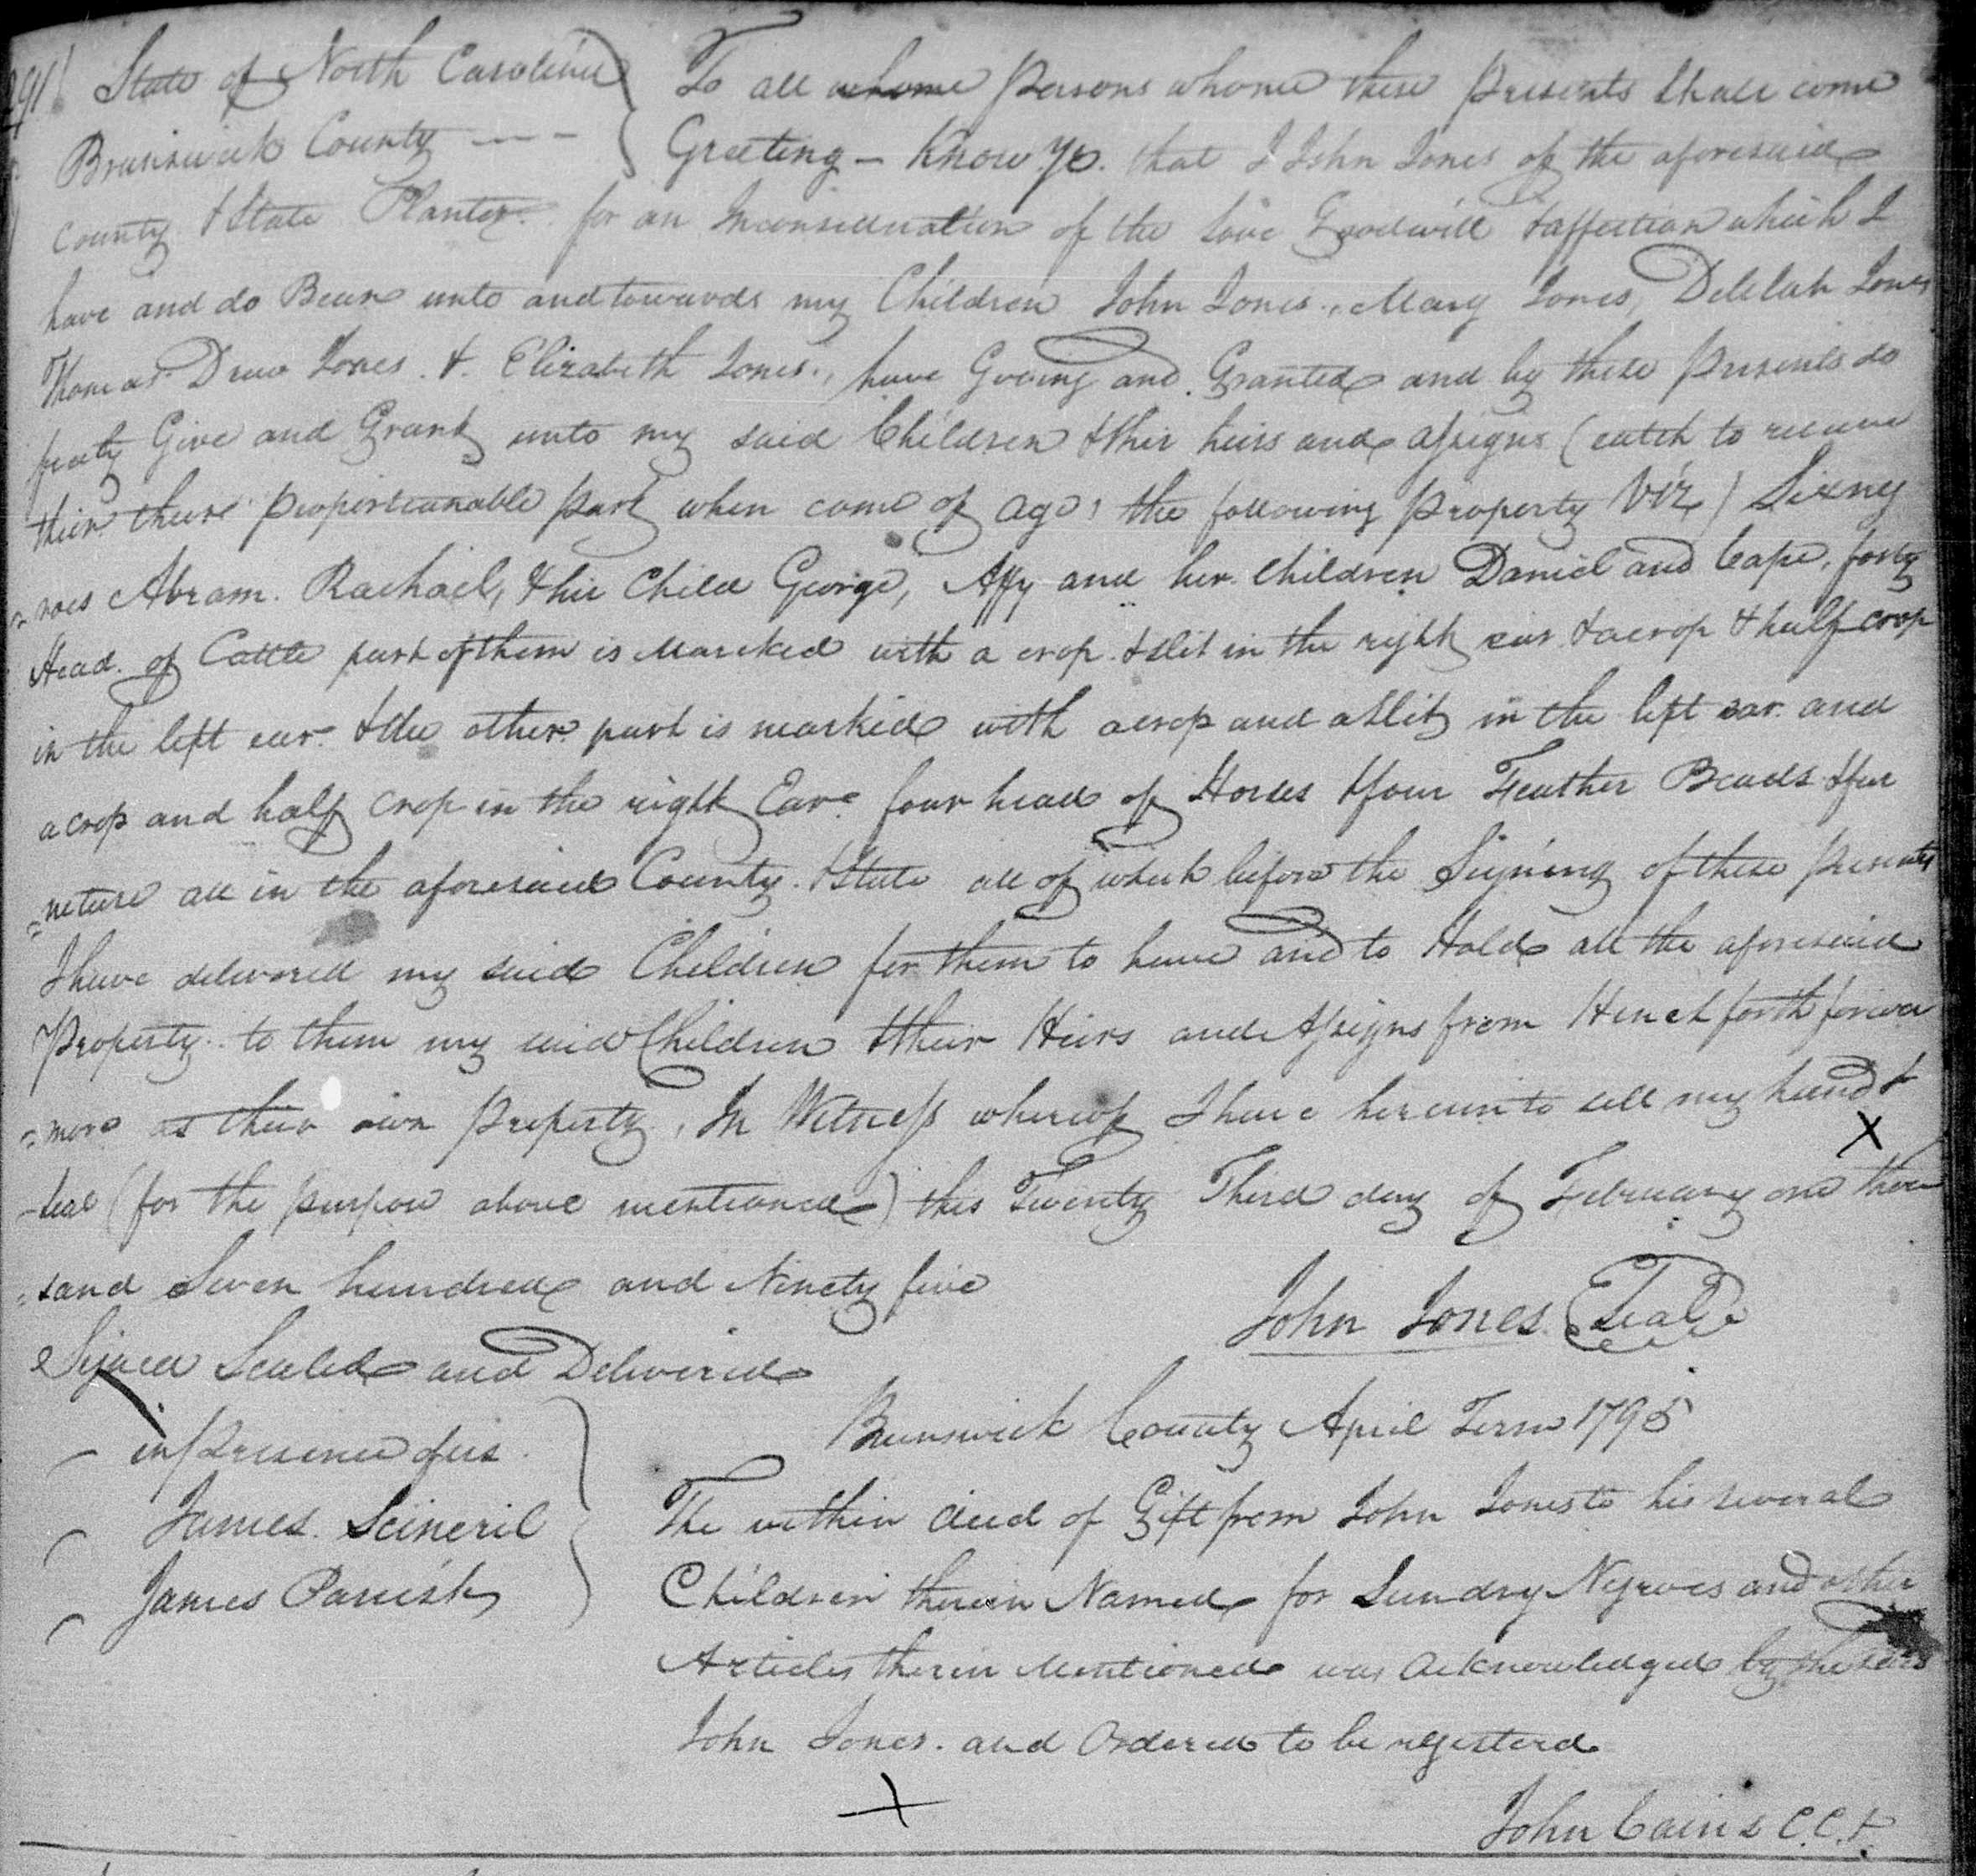 291
State of North Carolina } To all whome Persons whome these Presents Shall come
Brunswick County --- } Greeting - Know Ye. that I John Jones of the aforesaid
County & State Planter. for an Inconsideration of the Love Goodwill & affection which I
have and do Beare unto and towards my Children John Jones, Mary Jones, Delelah Jones
Thomas Drew Jones & Elizabeth Jones, have Giveing and Granted and by these Presents do
freely Give and Grant unto my said Children & thir heirs and assigns (eatch to receive
their theire proportiannable part when come of age, the following Property Viz) Six neg
=roes Abram. Rachael, & hir Child George, Affy and her Children Daniel and Cape, forty
Head. of Cattle part of them is Marcked with a crop. & slit in the right ear & a crop & half crop
in the left ear. & the other part is marked with a crop and a Slit in the left ear. and
a crop and half crop in the right Eare four head of Horses & four Feather Beads & fur
=neture all in the aforesaid County. & State all of which before the Signing of these Presents
I have delivered my said Children for them to have and to Hold all the aforesaid
Property. to them my said Children & their Heirs and Assigns from Hence forth forever
=more as their own Property, In Witness whereof I have hereunto sett my hand &
X
-Seal (for the purpose above mentioned) this Twenty Third day of February one thou
=sand Seven hundred and Ninety five
John Jones. Seal
Signed Sealed and Delivered
in presence of us.
James
James Parrish
Brunswick County April Term 1795
The within deed of Gift from John Jones to his several
Children therein Named for Sundry Negroes and other
Articles therin Mentioned was Acknowledged by the said
John Jones. and Ordered to be regesterd
X
John Cains C.C.